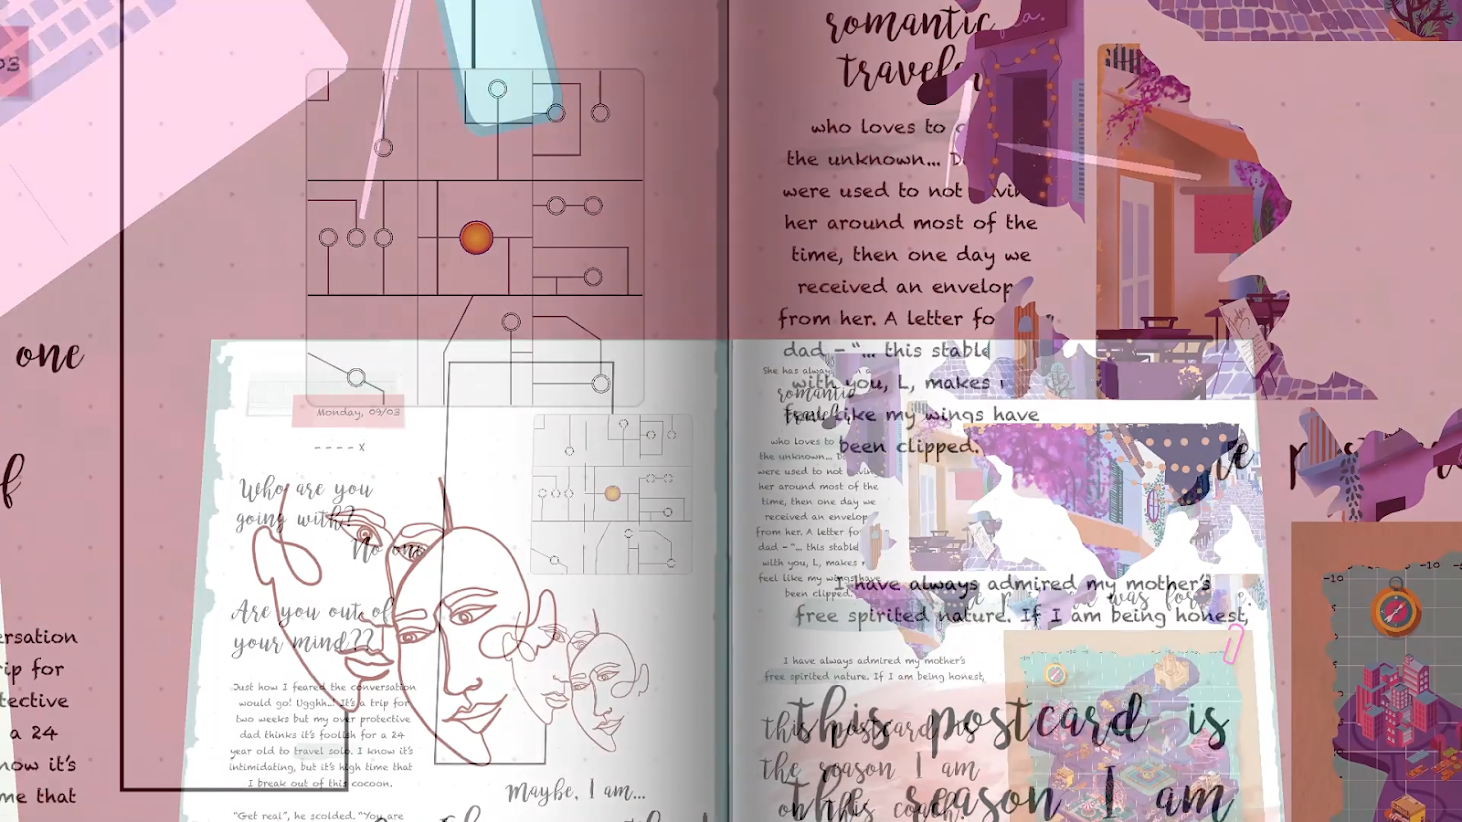 03
one
of
ersation
rip for
tective
a 24
now it's
me that
Monday, 09/03
- - - - x
Who are you
going with?
No one
Are you out of
your mind??
Just how I feared the conversation
would go! Ugghh... It's a trip for
two weeks but my over protective
dad thinks it's foolish for a 24
year old to travel solo. I know it's
intimidating, but it's high time that
I break out of this cocoon.
"Get real", he scolded. "You are
Maybe, I am...
romantic
traveler
who loves to
the unknown...
were used to not
her around most of the
time, then one day we
received an envelop
from her. A letter fo
dad - "... this stable
with you, L, makes
feel like my wings have
been clipped.
She has always
romantic
travel
who loves to
the unknown...
were used to not
her around most of the
time, then one day we
received an envelop
from her. A letter fo
dad - "... this stable
with you, L, makes
feel like my wings have
been clipped.
was for
I have always admired my mother's
free spirited nature. If I am being honest,
I have always admired my mother's
free spirited nature. If I am being honest,
this postcard is
the reason I am
this postcard is
the reason I am
on this coach.
-10
-10